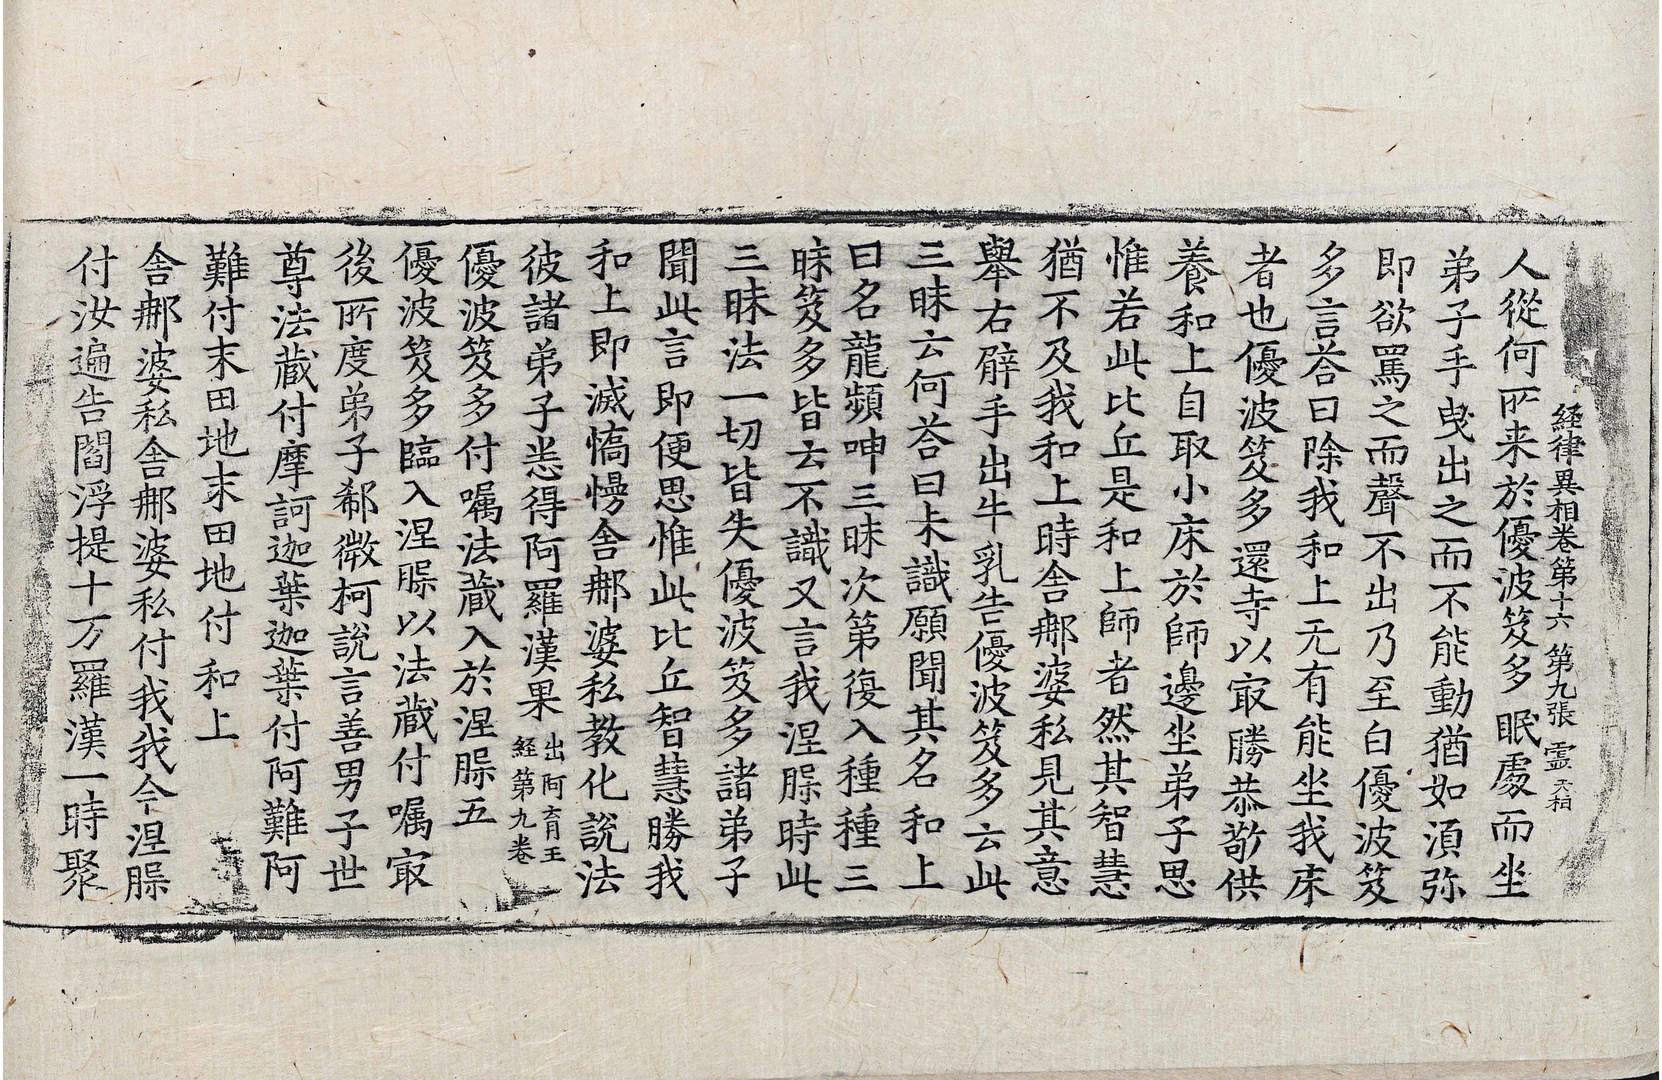 経律異相卷第十六 第九張 靈 天柏
人從何所来於優波笈多眠䖏而坐
弟子手曵出之而不能動猶如湏弥
即欲罵之而聲不出乃至白優波笈
多言荅曰除我和上无有能坐我床
者也優波笈多還寺以㝡勝恭敬供
養和上自取小床於師邊坐弟子思
惟若此比丘是和上師者然其智慧
猶不及我和上時舎𨚗婆私見其意
舉右臂手出牛乳告優波笈多云此
三昧云何荅曰未識願聞其名和上
曰名龍頻呻三昧次第復入種種三
昧笈多皆云不識又言我涅槃時此
三昧法一切皆失優波笈多諸弟子
聞此言即便思惟此比丘智慧勝我
和上即滅憍慢舎𨚗婆私教化說法
彼諸弟子悉得阿羅漢果 出阿育王経第九卷
優波笈多付嘱法蔵入於涅槃五
優波笈多臨入涅槃以法蔵付嘱㝡
後所度弟子郗徴柯說言善男子世
尊法蔵付摩訶迦葉迦葉付阿難阿
難付末田地末田地付和上
舎𨚗婆私舎𨚗婆私付我我今涅槃
付汝遍告閻浮提十万羅漢一時聚